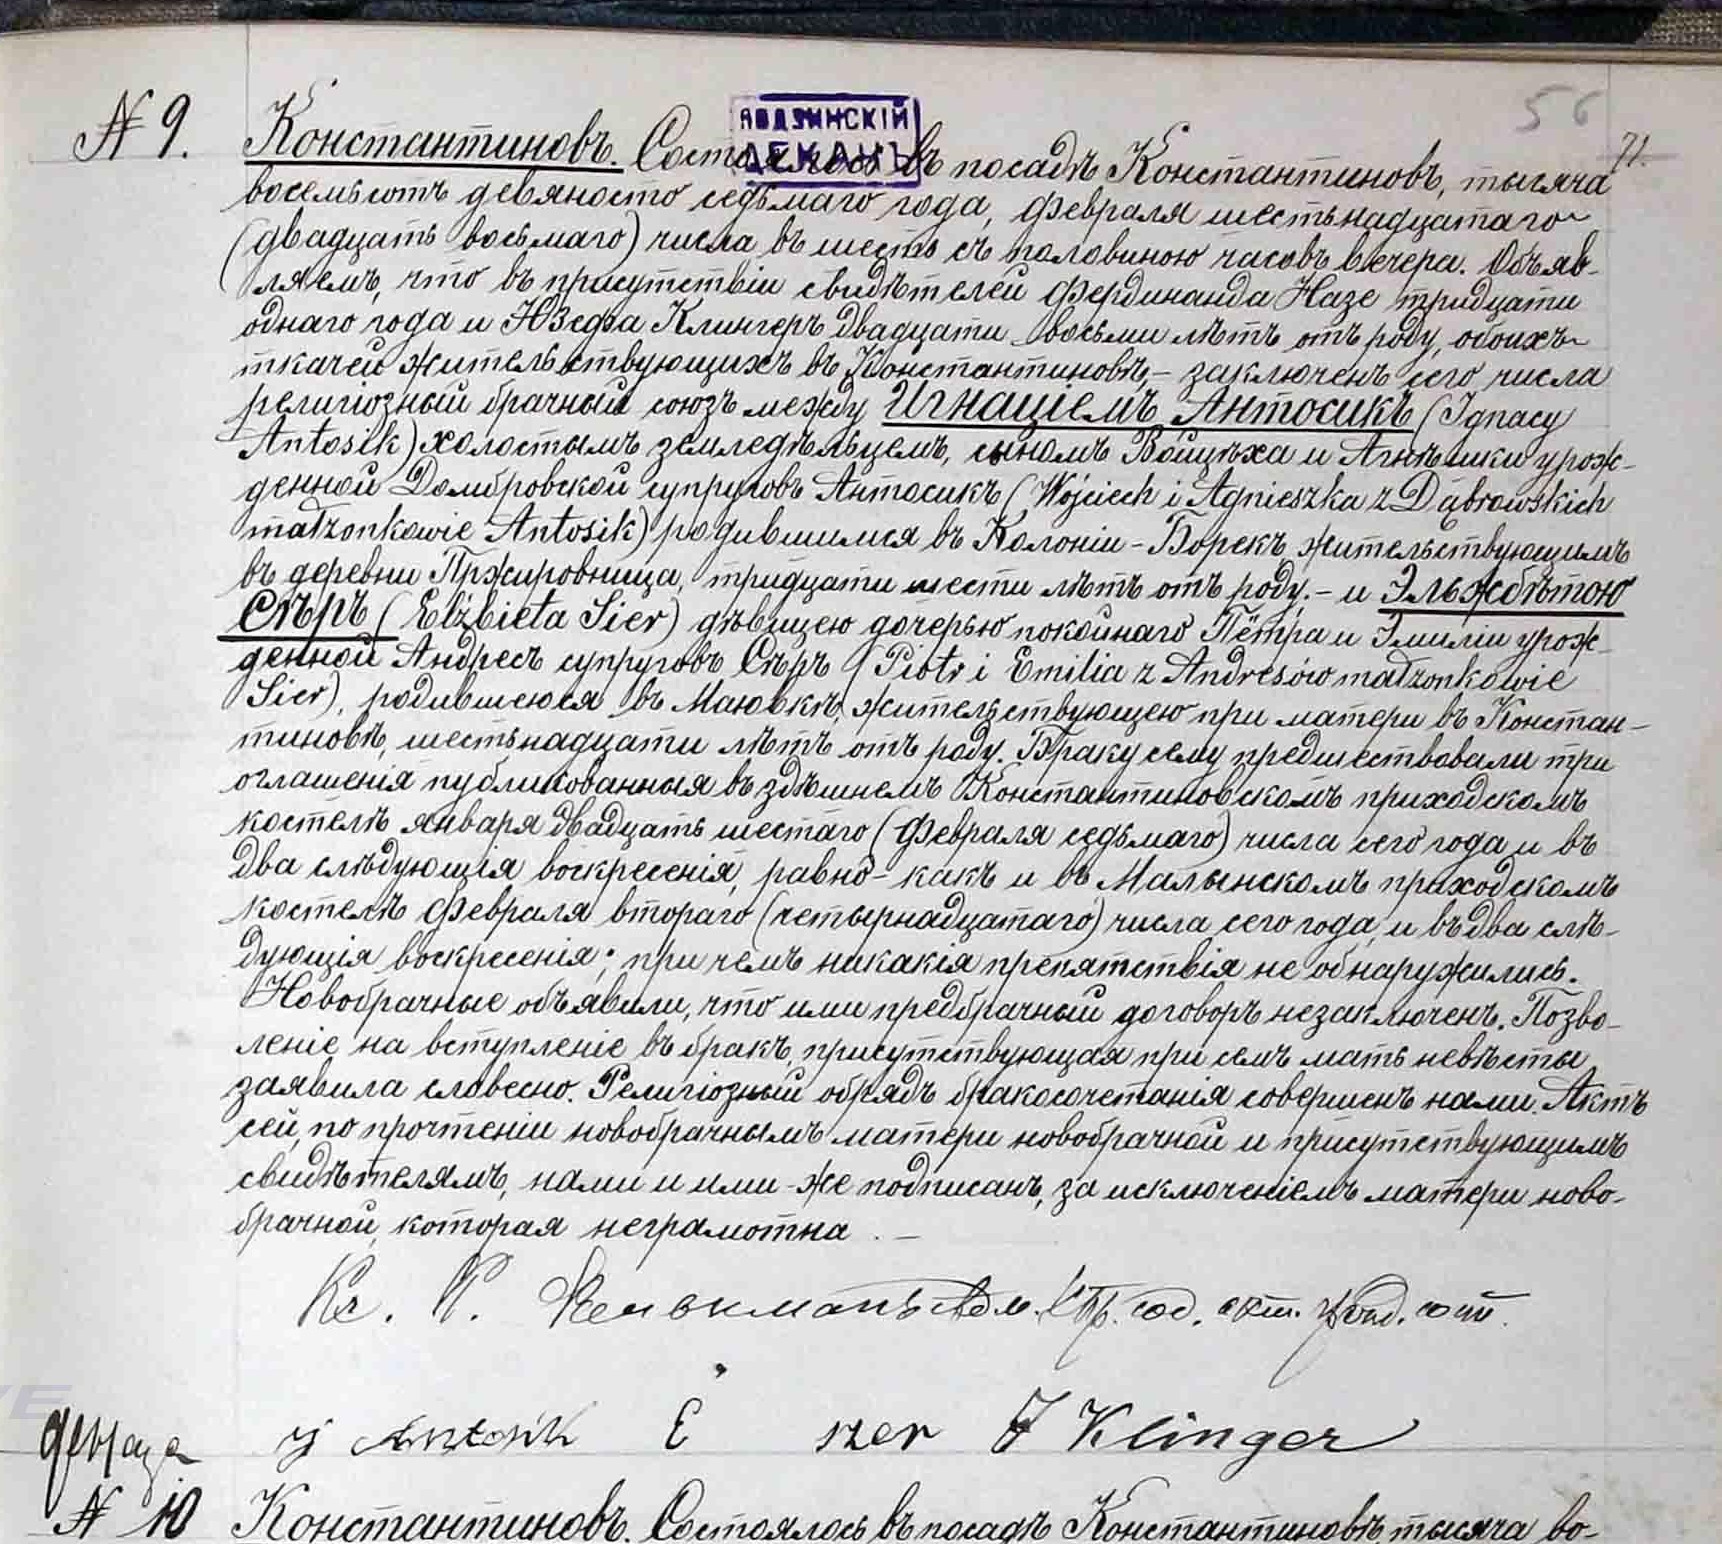 56
71.
№ 9.
ЛОДЗИНСКІЙ
ДЕКАНЪ
Константиновъ. Состоялось въ посадѣ Константиновъ, тысяча
восемьсотъ девяносто седьмаго года, февраля шестьнадцатаго
(двадцать восьмаго) числа въ шесть съ половиною часовъ вечера. Объяв-
ляемъ, что въ присутствіи свидѣтелей Фердинанда Назе тридцати
однаго года и Юзефа Клингеръ двадцати восьми лѣтъ отъ роду, обоихъ
ткачей жительствующихъ въ Константиновѣ,- заключенъ сего числа
религіозный брачный союзъ между Игнаціемъ Антосикъ (Ignacy
Antosik) холостымъ земледѣльцемъ, сыномъ Войцѣха и Агнѣшки урож-
денной Домбровской супруговъ Антосикъ (Wojciech i Agnieszka z Dąbrowskich
małżonkowie Antosik) родившимся въ Колоніи-Борекъ жительствующимъ
въ деревни Пржировница, тридцати шести лѣтъ отъ роду,- и Эльжбѣтою
Сѣръ (Elżbieta Sier) дѣвицею дочерью покойнаго Пётра и Эмиліи урож-
денной Андресъ супруговъ Сѣръ (Piotr i Emilia z Andresów małżonkowie
Sier), родившеюся въ Маювкѣ, жительствующею при матери въ Констан-
тиновѣ, шестьнадцати лѣтъ отъ роду. Браку сему предшествовали три
оглашенія публикованныя въ здѣшнемъ Константиновскомъ приходскомъ
костелѣ января двадцать шестаго (февраля седьмаго) числа сего года и въ
два слѣдующія воскресенія, равно-какъ и въ Малынскомъ приходскомъ
костелѣ февраля втораго (четырнадцатаго) числа сего года, и въ два слѣ-
дующія воскресенія; при чемъ никакія препятствія не обнаружились.
Новобрачные объявили, что ими предбрачный договоръ незаключенъ. Позво-
леніе на вступленіе въ бракъ, присутствующая при семъ мать невѣсты
заявила словесно. Религіозный обрядъ бракосочетанія совершенъ нами. Актъ
сей, по прочтеніи новобрачнымъ матери новобрачной и присутствующимъ
свидѣтелямъ, нами и ими-же подписанъ, за исключеніемъ матери ново-
брачной, которая неграмотна.-
Кс.
Antosik E szer J Klinger
Февраля
№ 10 Константиновъ. Состоялось въ посадѣ Константиновѣ, тысяча во-